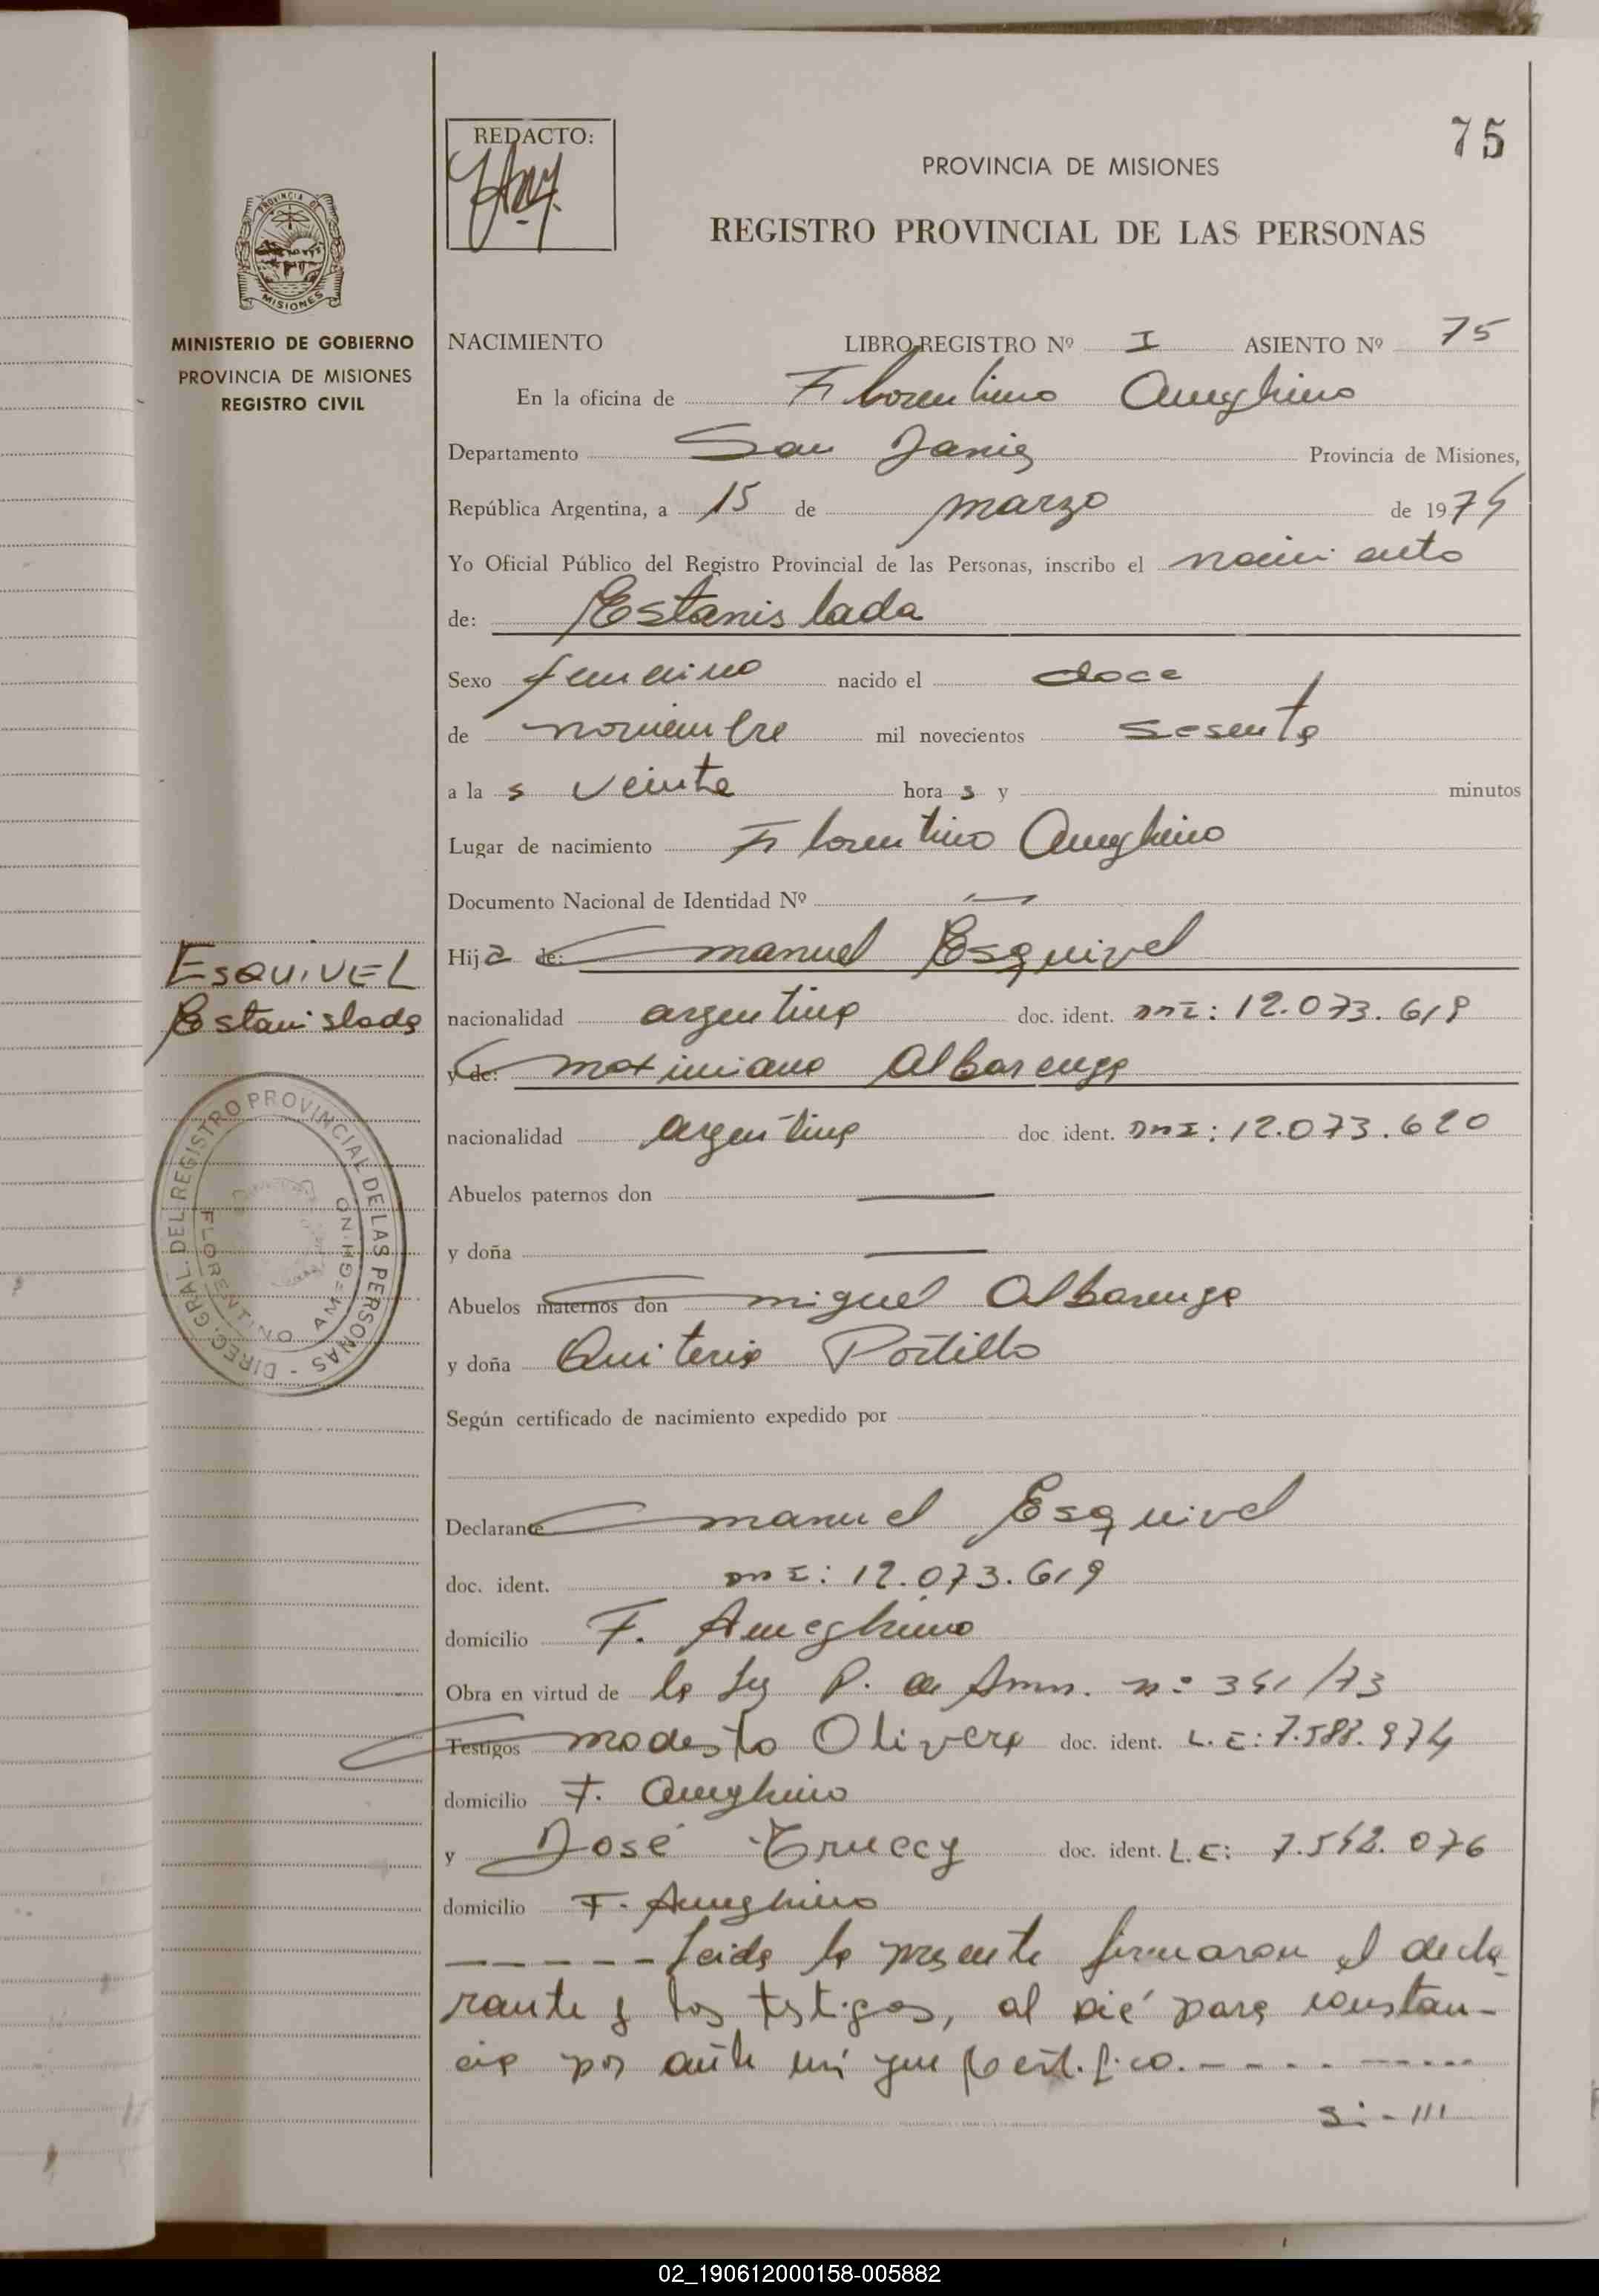 75
REDACTO:
PROVINCIA DE MISIONES
REGISTRO PROVINCIAL DE LAS PERSONAS
PROVINCIA DE
MISIONES
MINISTERIO DE GOBIERNO
PROVINCIA DE MISIONES
REGISTRO CIVIL
NACIMIENTO LIBRO REGISTRO Nº I ASIENTO Nº 75
En la oficina de Florentino Ameghino
Departamento San Javier Provincia de Misiones,
República Argentina, a 15 de marzo de 1974
Yo Oficial Público del Registro Provincial de las Personas, inscribo el nacimiento
de: Estanislada
Sexo femenino nacido el doce
de noviembre mil novecientos sesenta
a la s veinte hora s y minutos
Lugar de nacimiento Florentino Ameghino
Documento Nacional de Identidad Nº —
Hija de: Manuel Esquivel
ESQUIVEL
Estanislada
nacionalidad argentina doc. ident. DNI: 12.073.619
y de: Maximiana Albarenga
nacionalidad argentina doc. ident. DNI: 12.073.620
Abuelos paternos don —
y doña —
Abuelos maternos don Miguel Albarenga
y doña Quiteria Portillo
DIREC. GRAL. DEL REGISTRO PROVINCIAL DE LAS PERSONAS -
FLORENTINO AMEGHINO
Según certificado de nacimiento expedido por
Declarante Manuel Esquivel
doc. ident. DNI: 12.073.619
domicilio F. Ameghino
Obra en virtud de la Ley P. de Amn. nº 341/73
Testigos Modesto Olivera doc. ident. L.E: 7.588.974
domicilio F. Ameghino
y José Truccy doc. ident. L.E: 7.542.076
domicilio F. Ameghino
----- Leida la presente firmaron el decla
rante y los testigos, al pié para constan-
cia por ante mí que certifico. - - - - -----
Si - III
02_190612000158-005882